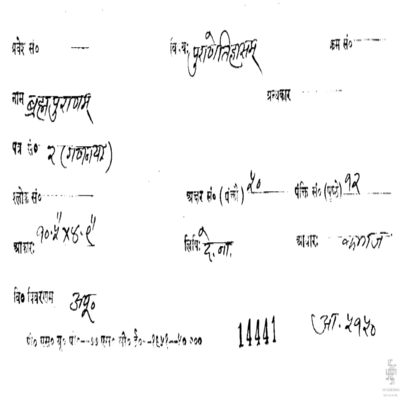 प्रवेश सं० —— वि-वः पुराणेतिहासम् क्रम सं० ——
नाम ब्रह्मपुराणम् ग्रन्थकार ——
पत्र सं० २ (गणनया)
श्लोक सं० —— अक्षर सं० (पंक्तौ) ५० पंक्ति सं० (पृष्ठे) १२
आकारः १०.५" x ४.९" लिपिः दे.ना. आधारः कागज
वि० विवरणम् अपू०
14441